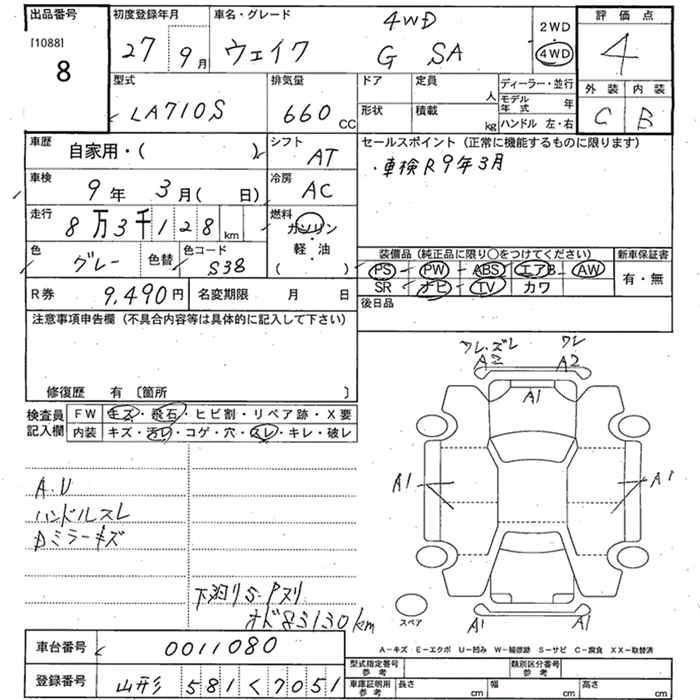 出品番号
[1088]
8
初度登録年月
27 9月
車名・グレード
4WD
ウェイク G SA
2WD
4WD
評価点
4
外装 内装
C B
型式
LA710S
排気量
660 CC
ドア
形状
定員
人
積載
kg
ディーラー・並行
モデル年式 年
ハンドル 左・右
車歴
自家用・( )
シフト
AT
車検
9年 3月( 日)
冷房
AC
走行
8万3千128km
燃料
ガソリン
軽・油
( )
色
グレー
色替
色コード
S38
R券 9,490円
名変期限 月 日
セールスポイント(正常に機能するものに限ります)
・車検R9年3月
装備品(純正品に限り〇をつけてください)
PS PW ABS エアB AW
SR ナビ TV カワ
新車保証書
有・無
後日品
注意事項申告欄(不具合内容等は具体的に記入して下さい)
修復歴 有〔箇所 〕
検査員記入欄
FW キズ・飛石・ヒビ割・リペア跡・X要
内装 キズ・汚レ・コゲ・穴・スレ・キレ・破レ
A.U
ハンドルスレ
Dミラーキズ
下回りS・Pスリ
オド83130km
ワレ・ズレ
A2
ワレ
A2
A1
A1
A1
A1
A1
スペア
A-キズ E-エクボ U-凹み W-補修跡 S-サビ C-腐食 XX-取替済
車台番号
0011080
登録番号
山形 581 く 7051
型式指定番号
参考
類別区分番号
参考
車庫証明用
参考
長さ cm
幅 cm
高さ cm